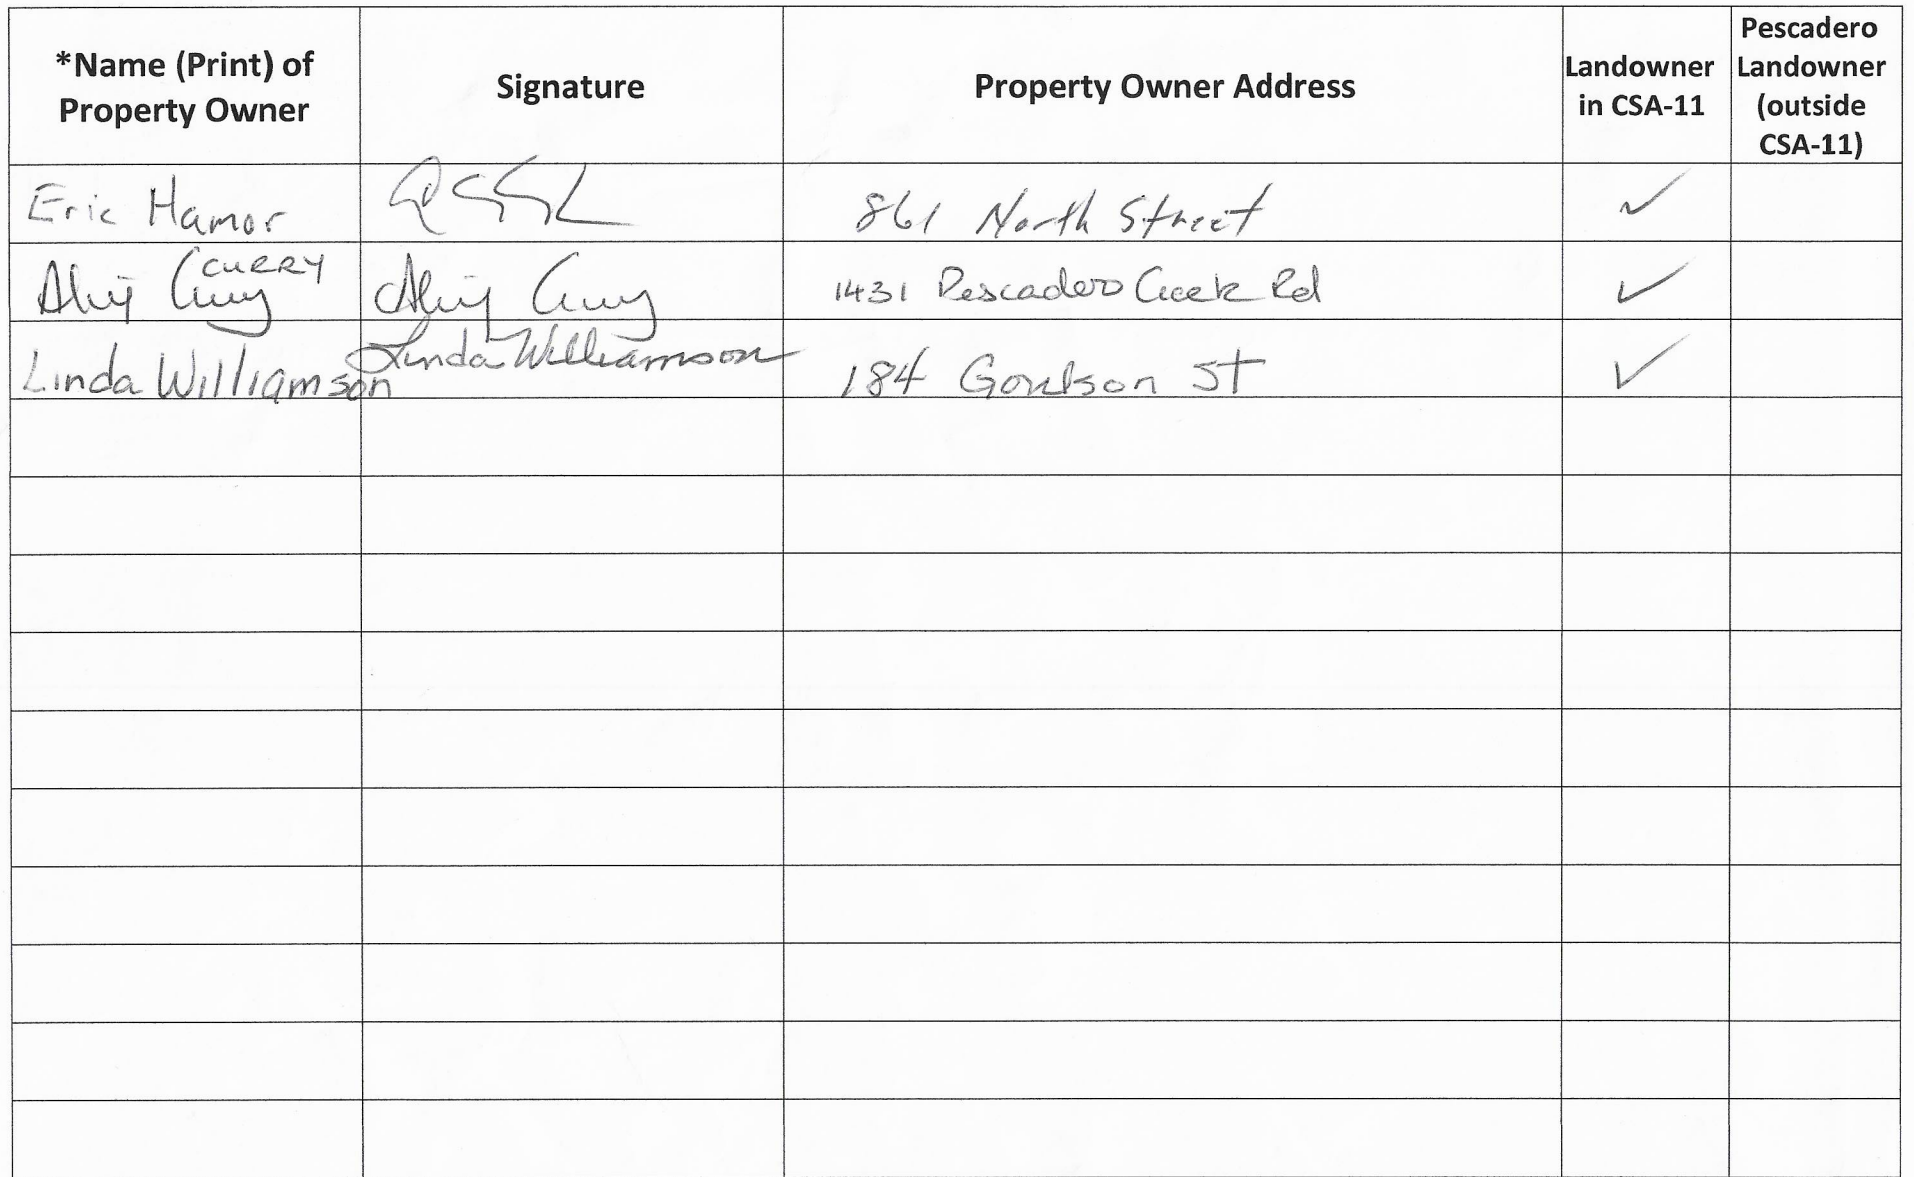 *Name (Print) of
Property Owner
Signature
Property Owner Address
Landowner
in CSA-11
Pescadero
Landowner
(outside
CSA-11)
Eric Hamor
861 North Street
✓
CURRY
1431 Pescadero Creek Rd
✓
Linda Williamson
Linda Williamson
184 Goulson St
✓